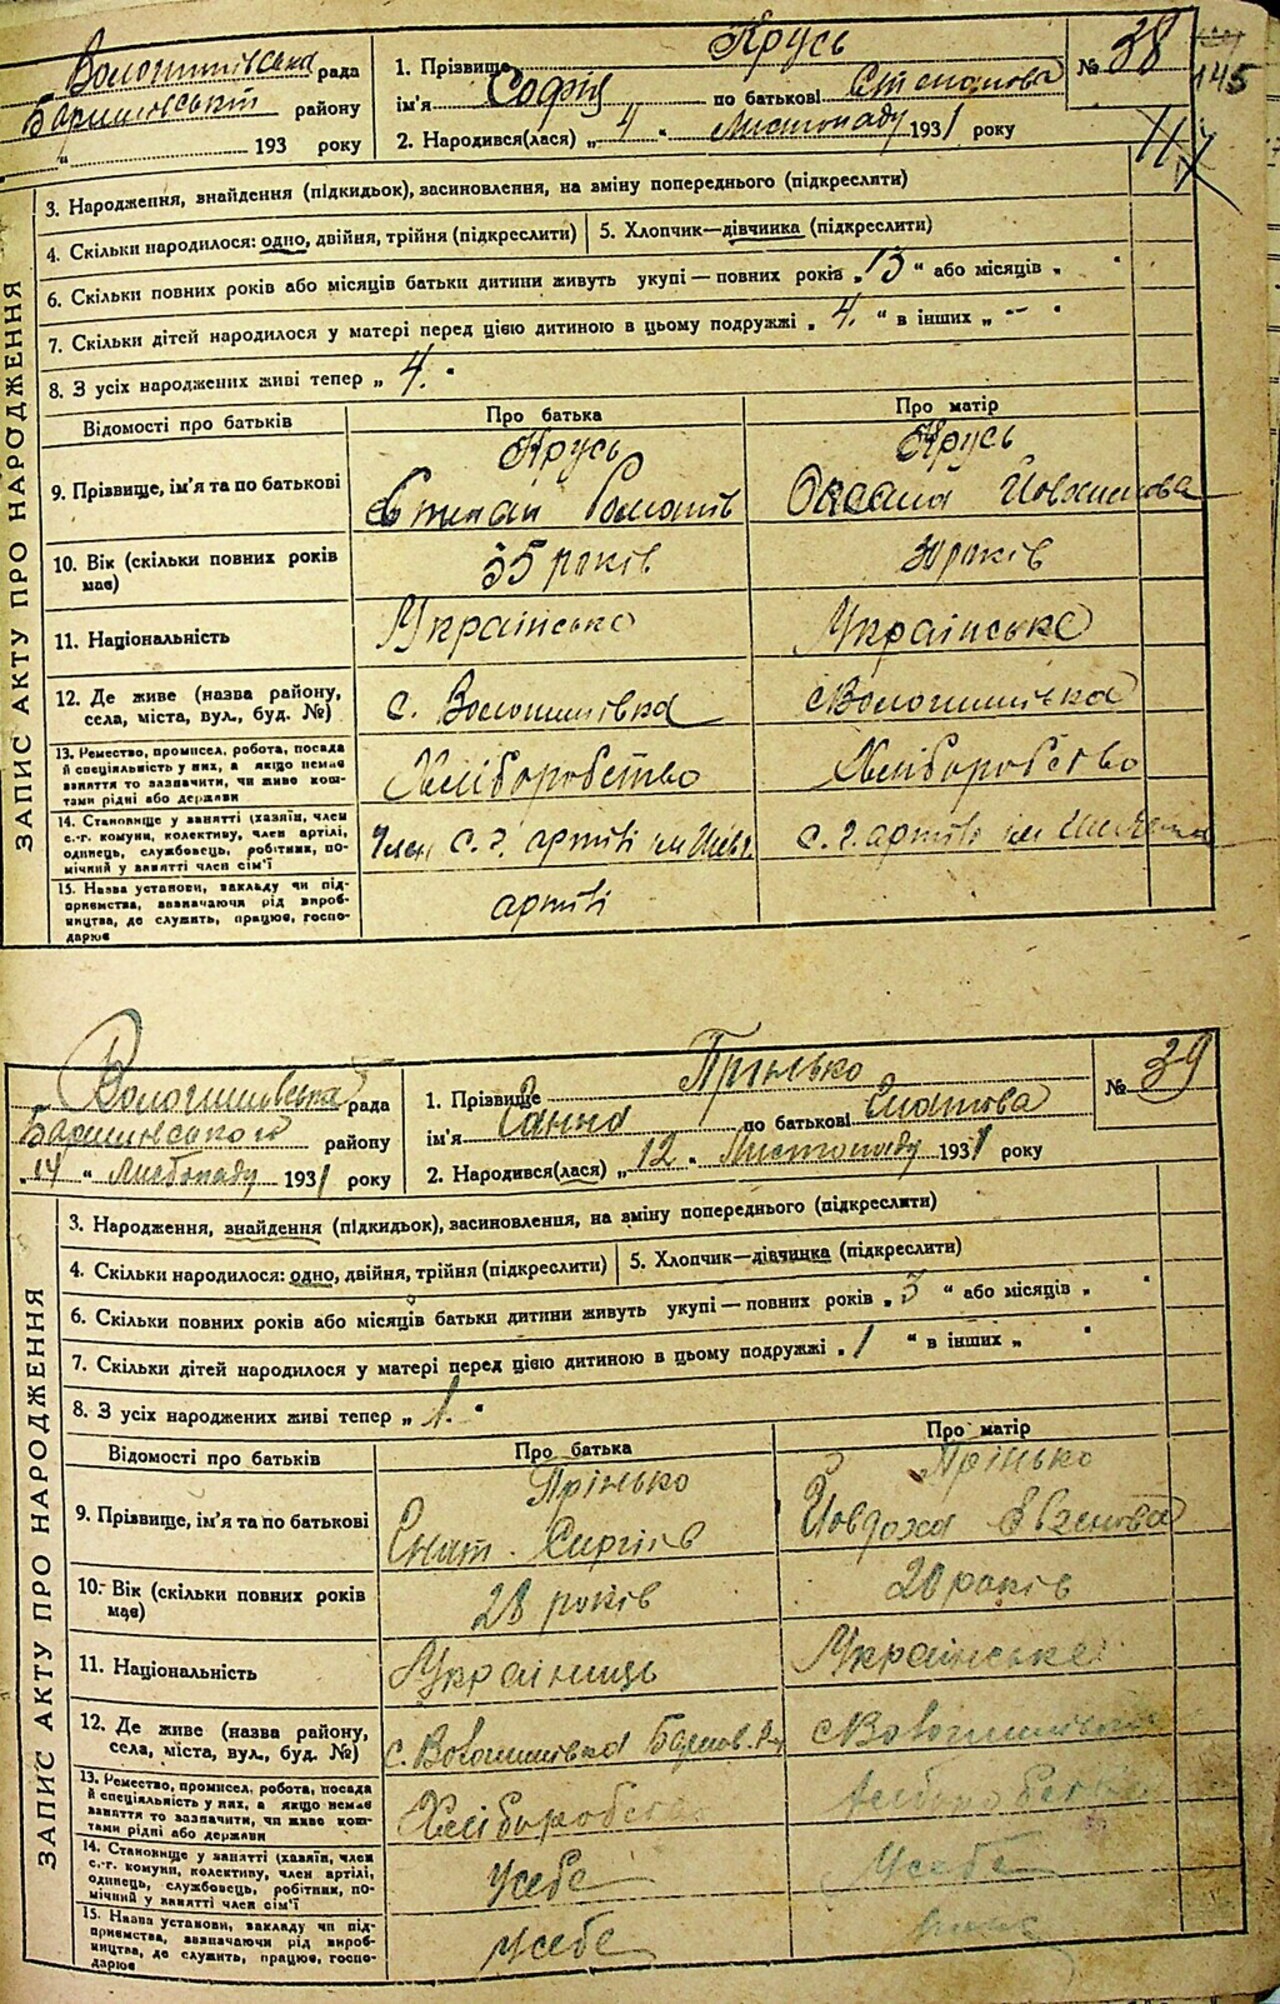 Волошинівська рада
1. Прізвище Крусь
№ 38
145
Баришівський району
ім'я Софія по батькові Степанова
193 року
2. Народився(лася) „4“ Листопаду 1931 року
ЗАПИС АКТУ ПРО НАРОДЖЕННЯ
3. Народження, знайдення (підкидьок), засиновлення, на зміну попереднього (підкреслити)
4. Скільки народилося: одно, двійня, трійня (підкреслити)
5. Хлопчик—дівчинка (підкреслити)
6. Скільки повних років або місяців батьки дитини живуть укупі — повних років „13“ або місяців „ “
7. Скільки дітей народилося у матері перед цією дитиною в цьому подружжі „4.“ в інших „—“
8. З усіх народжених живі тепер „4.“
Відомості про батьків
Про батька
Про матір
9. Прізвище, ім'я та по батькові
Крусь
Степан Романів
Крусь
Оксана
10. Вік (скільки повних років має)
35 років
30 років
11. Національність
Українська
Українська
12. Де живе (назва району, села, міста, вул., буд. №)
с. Волошинівка
с Волошинівка
13. Ремество, промисел, робота, посада
й спеціяльність у них, а якщо немає
заняття то зазначити, чи живе кош-
тами рідні або держави
Хліборобство
Хліборобство
14. Становище у занятті (хазяїн, член
с.-г. комуни, колективу, член артілі,
одинець, службовець, робітник, по-
мічний у занятті член сім'ї
Член с. г. артілі ім Шевч.
с. г. артілі ім Шевченка
15. Назва установи, закладу чи під-
приємства, зазначаючи рід вироб-
ництва, де служить, працює, госпо-
дарює
артілі
Волошинівська рада
1. Прізвище Прінько
№ 39
Баришівського району
ім'я Ганна по батькові Гнатова
„14“ Листопаду 1931 року
2. Народився(лася) „12“ Листопаду 1931 року
ЗАПИС АКТУ ПРО НАРОДЖЕННЯ
3. Народження, знайдення (підкидьок), засиновлення, на зміну попереднього (підкреслити)
4. Скільки народилося: одно, двійня, трійня (підкреслити)
5. Хлопчик—дівчинка (підкреслити)
6. Скільки повних років або місяців батьки дитини живуть укупі — повних років „3“ або місяців „ “
7. Скільки дітей народилося у матері перед цією дитиною в цьому подружжі „1“ в інших „ “
8. З усіх народжених живі тепер „1.“
Відомості про батьків
Про батька
Про матір
9. Прізвище, ім'я та по батькові
Прінько
Гнат Сиргіїв
Прінько
Йовдоха Євгенова
10. Вік (скільки повних років має)
28 років
20 років
11. Національність
Українець
Українська
12. Де живе (назва району, села, міста, вул., буд. №)
с. Волошинівка
с Волошинівка
13. Ремество, промисел, робота, посада
й спеціяльність у них, а якщо немає
заняття то зазначити, чи живе кош-
тами рідні або держави
Хліборобство
Хліборобство
14. Становище у занятті (хазяїн, член
с.-г. комуни, колективу, член артілі,
одинець, службовець, робітник, по-
мічний у занятті член сім'ї
Усебе
Усебе
15. Назва установи, закладу чи під-
приємства, зазначаючи рід вироб-
ництва, де служить, працює, госпо-
дарює
Усебе